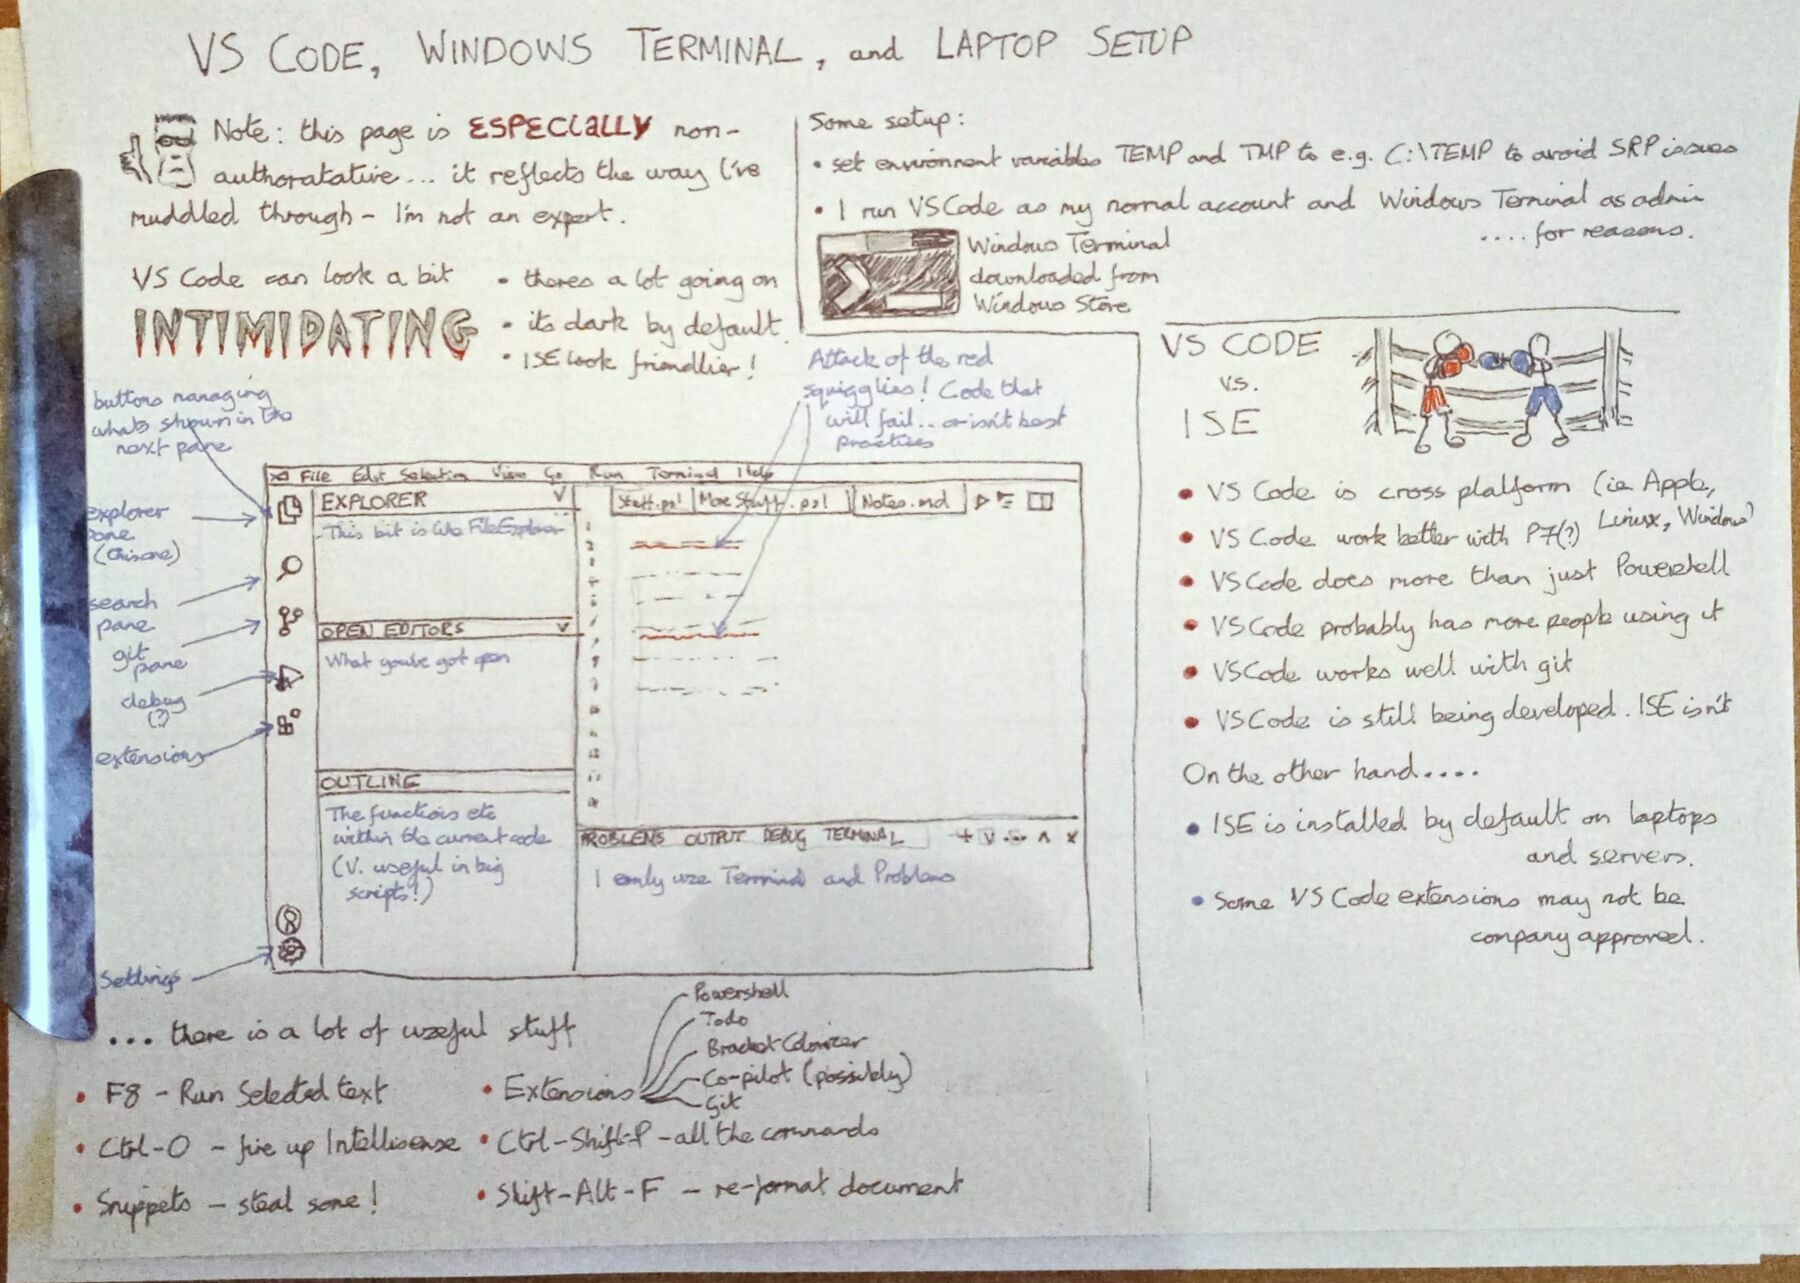 VS CODE, WINDOWS TERMINAL, and LAPTOP SETUP
Note: this page is ESPECIALLY non-
authoratative... it reflects the way I've
muddled through - I'm not an expert.
VS Code can look a bit
INTIMIDATING
• theres a lot going on
• its dark by default.
• ISE look friendlier!
Some setup:
• set environment variables TEMP and TMP to e.g. C:\TEMP to avoid SRP issues
• I run VSCode as my normal account and Windows Terminal as admin
.... for reasons.
Windows Terminal
downloaded from
Windows Store
Attack of the red
squigglies! Code that
will fail.. or isn't best
practices
buttons managing
whats shown in the
next pane
explorer
pane
(this one)
search
pane
git
pane
debug
(?)
extensions
settings
File Edit Selection View Go Run Terminal Help
EXPLORER
This bit is like FileExplorer
OPEN EDITORS
What you've got open
OUTLINE
The functions etc
within the current code
(V. useful in big
scripts!)
Stuff.ps1 More Stuff.ps1 Notes.md
PROBLEMS OUTPUT DEBUG TERMINAL + v ... ^ x
I only use Terminal and Problems
... there is a lot of useful stuff
• F8 - Run Selected text
• Ctrl-O - fire up Intellisense
• Snippets - steal some!
• Extensions
Powershell
Todo
Bracket Colorizer
Co-pilot (possibly)
Git
• Ctrl-Shift-P - all the commands
• Shift-Alt-F - re-format document
VS CODE
vs.
ISE
• VS Code is cross platform (ie Apple,
Linux, Windows)
• VS Code work better with P7(?)
• VSCode does more than just Powershell
• VSCode probably has more people using it
• VSCode works well with git
• VSCode is still being developed. ISE isn't
On the other hand....
• ISE is installed by default on laptops
and servers.
• Some VS Code extensions may not be
company approved.